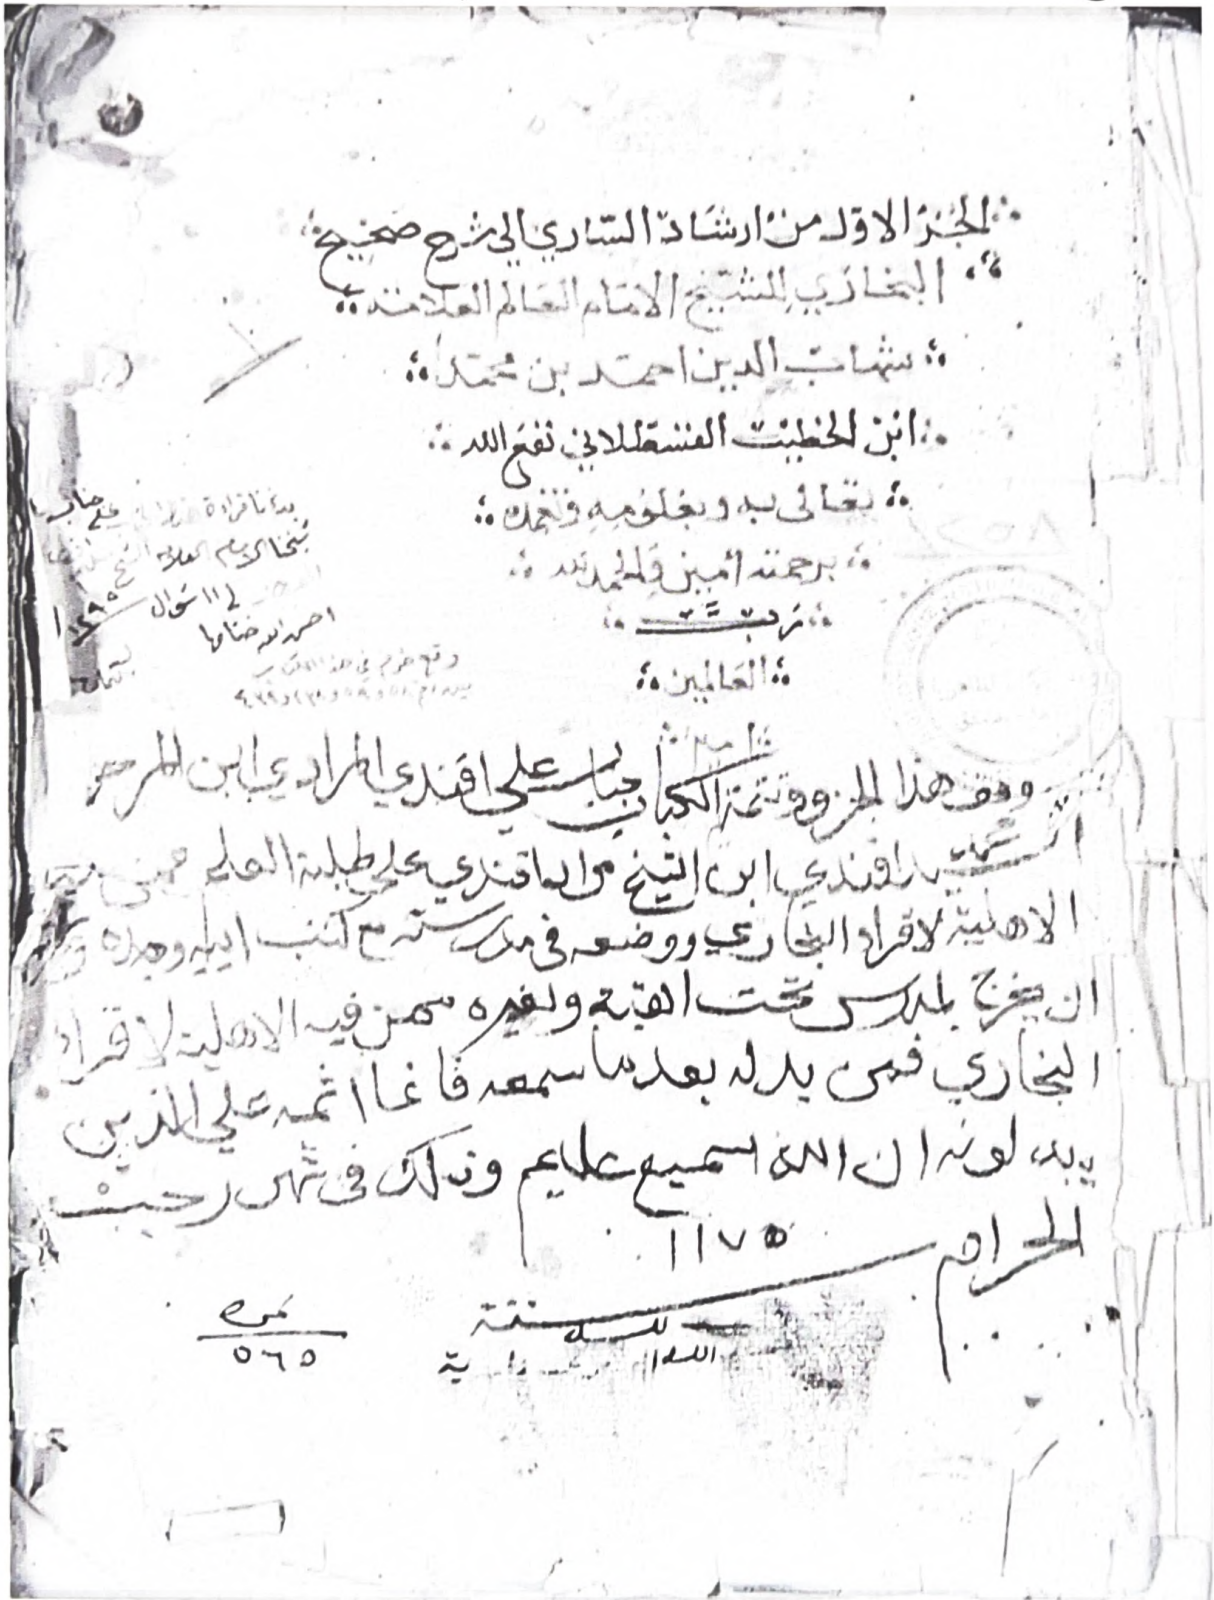 الجزء الاول من ارشاد الساري الي شرح صحيح
البخاري للشيخ الامام العالم العلامة
شهاب الدين احمد بن محمد
ابن الخطيب القسطلاني نفع الله
تعالى به وبعلومه وتغمده
برحمته امين والحمد لله
رب
العالمين
بدأنا قراءة علي جناب
شيخنا الامام العلامة الشيخ
في ١١ شوال
احسن الله ختامها
وقع خرم في هذا
وقف هذا الجزو وتتمة الكتاب جناب علي افندي المرادي ابن المرحوم
السيد افندي ابن الشيخ مراد افندي علي طلبة العلم ممن فيه
الاهلية لاقراء البخاري ووضعه في مدرسته مع كتب ابيه وجده
ان يخرج لمدرس تحت القبة ولغيره ممن فيه الاهلية لاقراء
البخاري فمن بدله بعد ما سمعه فانما اثمه علي الذين
يبدلونه ان الله سميع عليم وذلك في شهر رجب
الحرام
١١٧٥
سنة
نمره
٥٦٥